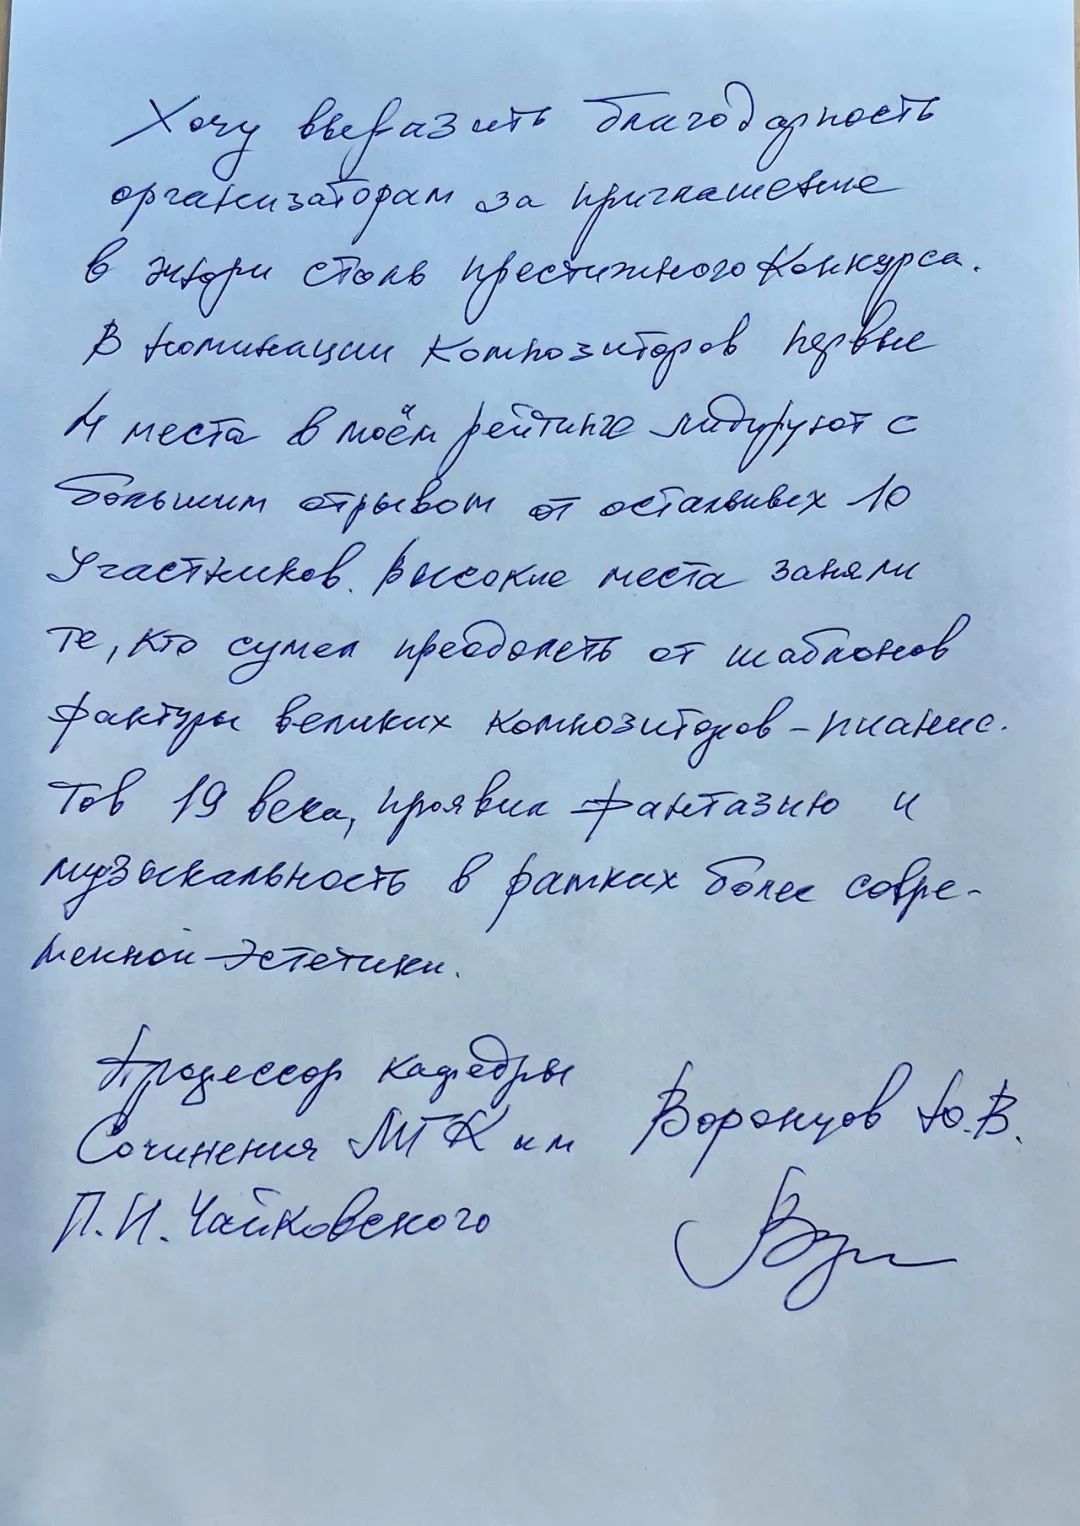 Хочу выразить благодарность
организаторам за приглашение
в жюри столь престижного Конкурса.
В номинации композиторов первые
4 места в моём рейтинге лидируют с
большим отрывом от остальных 10
участников. Высокие места заняли
те, кто сумел преодолеть от шаблонов
фактуры великих композиторов-пианис-
тов 19 века, проявил фантазию и
музыкальность в рамках более совре-
менной эстетики.
Профессор кафедры
Сочинения МГК им
П.И. Чайковского
Воронцов Ю.В.